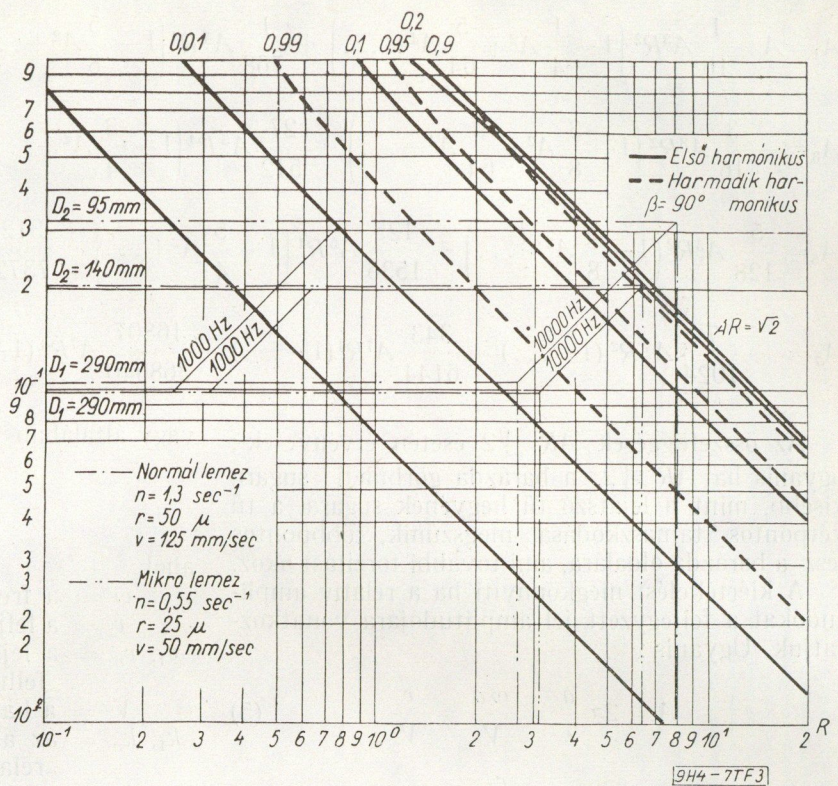 0,01 0,99 0,1 0,95 0,2 0,9
9
8
7
6
5
4
3
2
10⁻¹
9
8
7
6
5
4
3
3
2
2
10⁻²
D₂ = 95 mm
D₂ = 140 mm
D₁ = 290 mm
D₁ = 290 mm
1000 Hz
1000 Hz
10000 Hz
10000 Hz
AR = √2
Első harmónikus
Harmadik har-
β = 90° monikus
Normál lemez
n = 1,3 sec⁻¹
r = 50 μ
v = 125 mm/sec
Mikro lemez
n = 0,55 sec⁻¹
r = 25 μ
v = 50 mm/sec
10⁻¹ 2 3 4 5 6 7 8 9 10⁰ 2 3 4 5 6 7 8 9 10¹ 2
R
9H4-7TF3